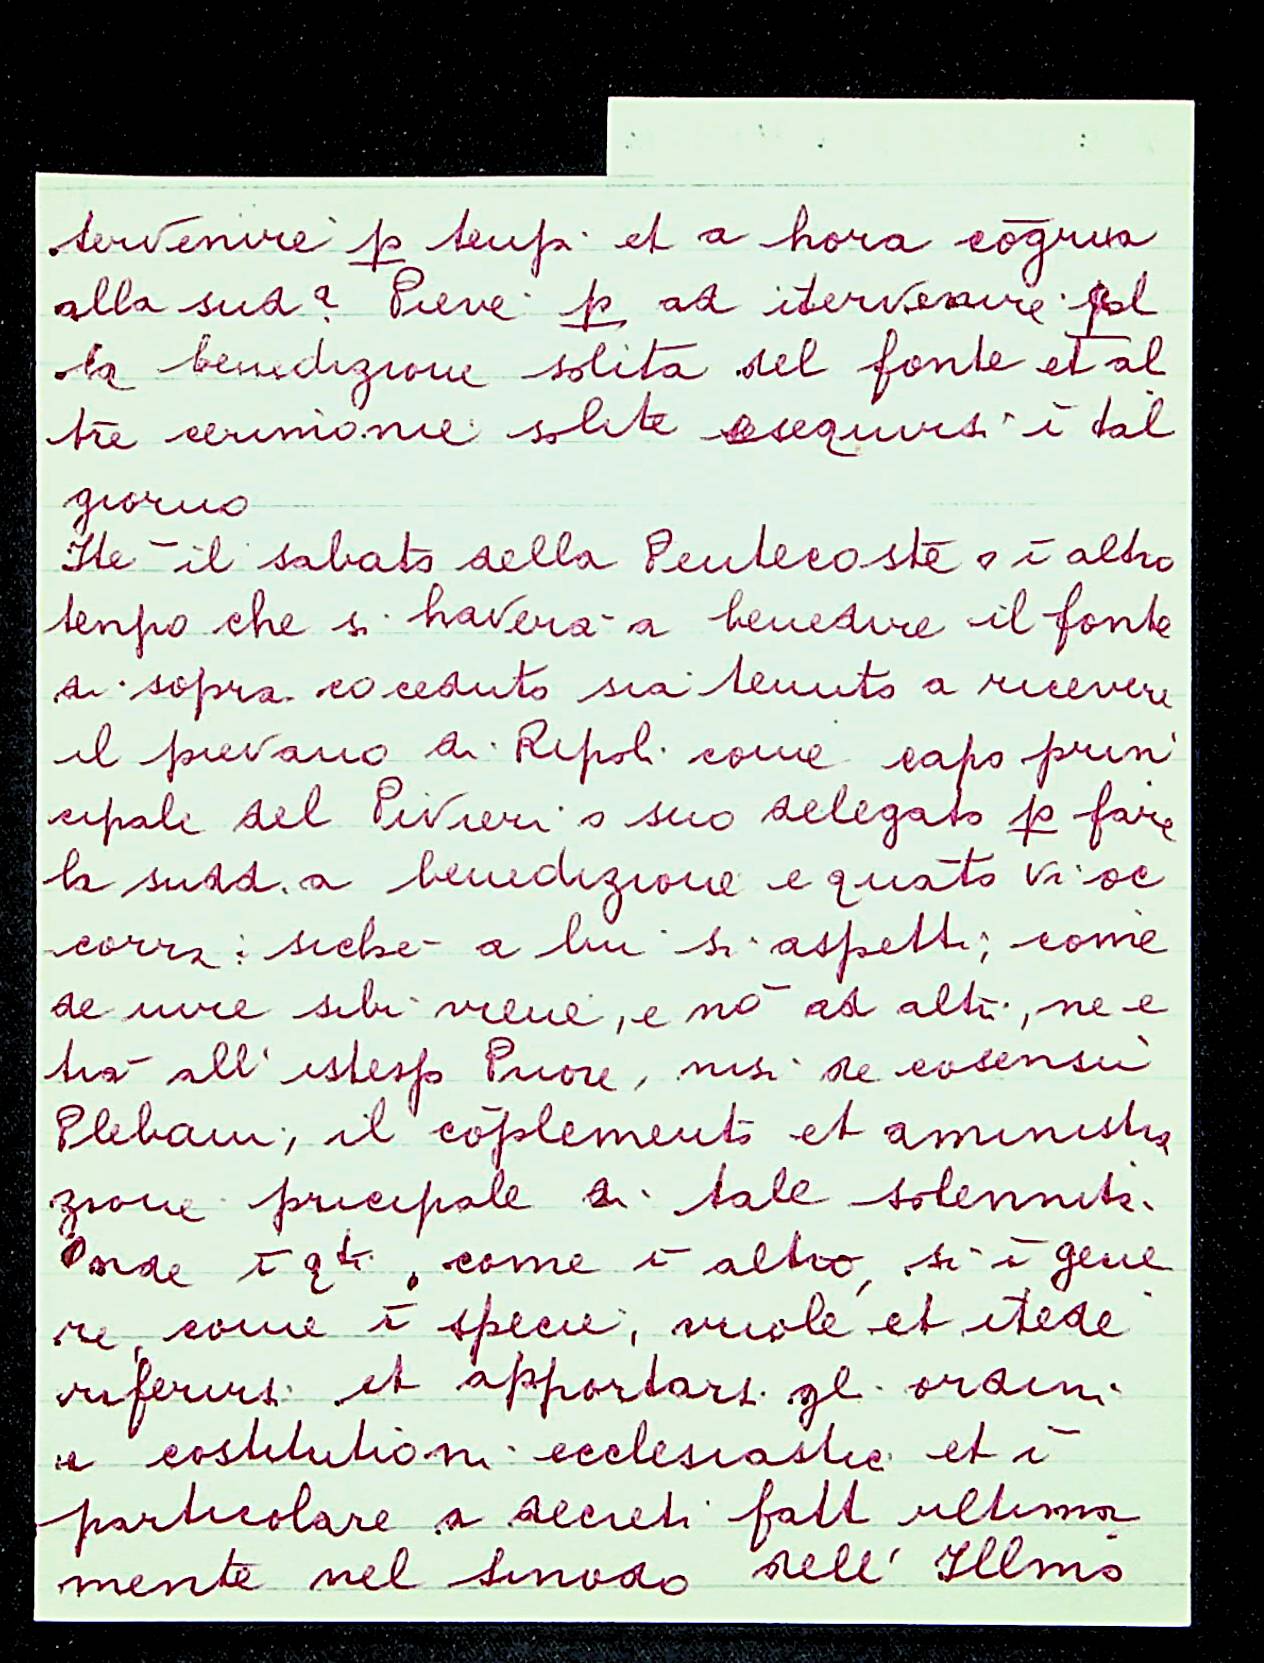 tervenire p temp. et a hora cōgrua
alla sud.a Pieve p ad itervenire pol
la benedizione solita del fonte et al
tre cerimonie solite esequirsi ī tal
giorno
Ite il sabato della Pentecoste o ī altro
tenpo che si haverà a benedire il fonte
di sopra coceduto sia tenuto a ricevere
il pievano di Ripoli come capo prin
cipale del Pivieri o suo delegato p fare
la sudd.a benedizione e quāto vi oc
corra: siche a lui si aspetti; come
de iure sibi viene, e nō ad altri, ne e
tiā all' istesso Priore, nisi de cosensu
Plebani, il cōplemento et aministra
zione pricipale di tale solennità.
Onde ī q.ti, come ī altro, si ī gene
re, come ī specie, vuole et itēde
riferirsi et apportarsi gli ordini
e costitutioni ecclesiastic et ī
particolare a decreti fatt ultima
mente nel sinodo dell' Illmo